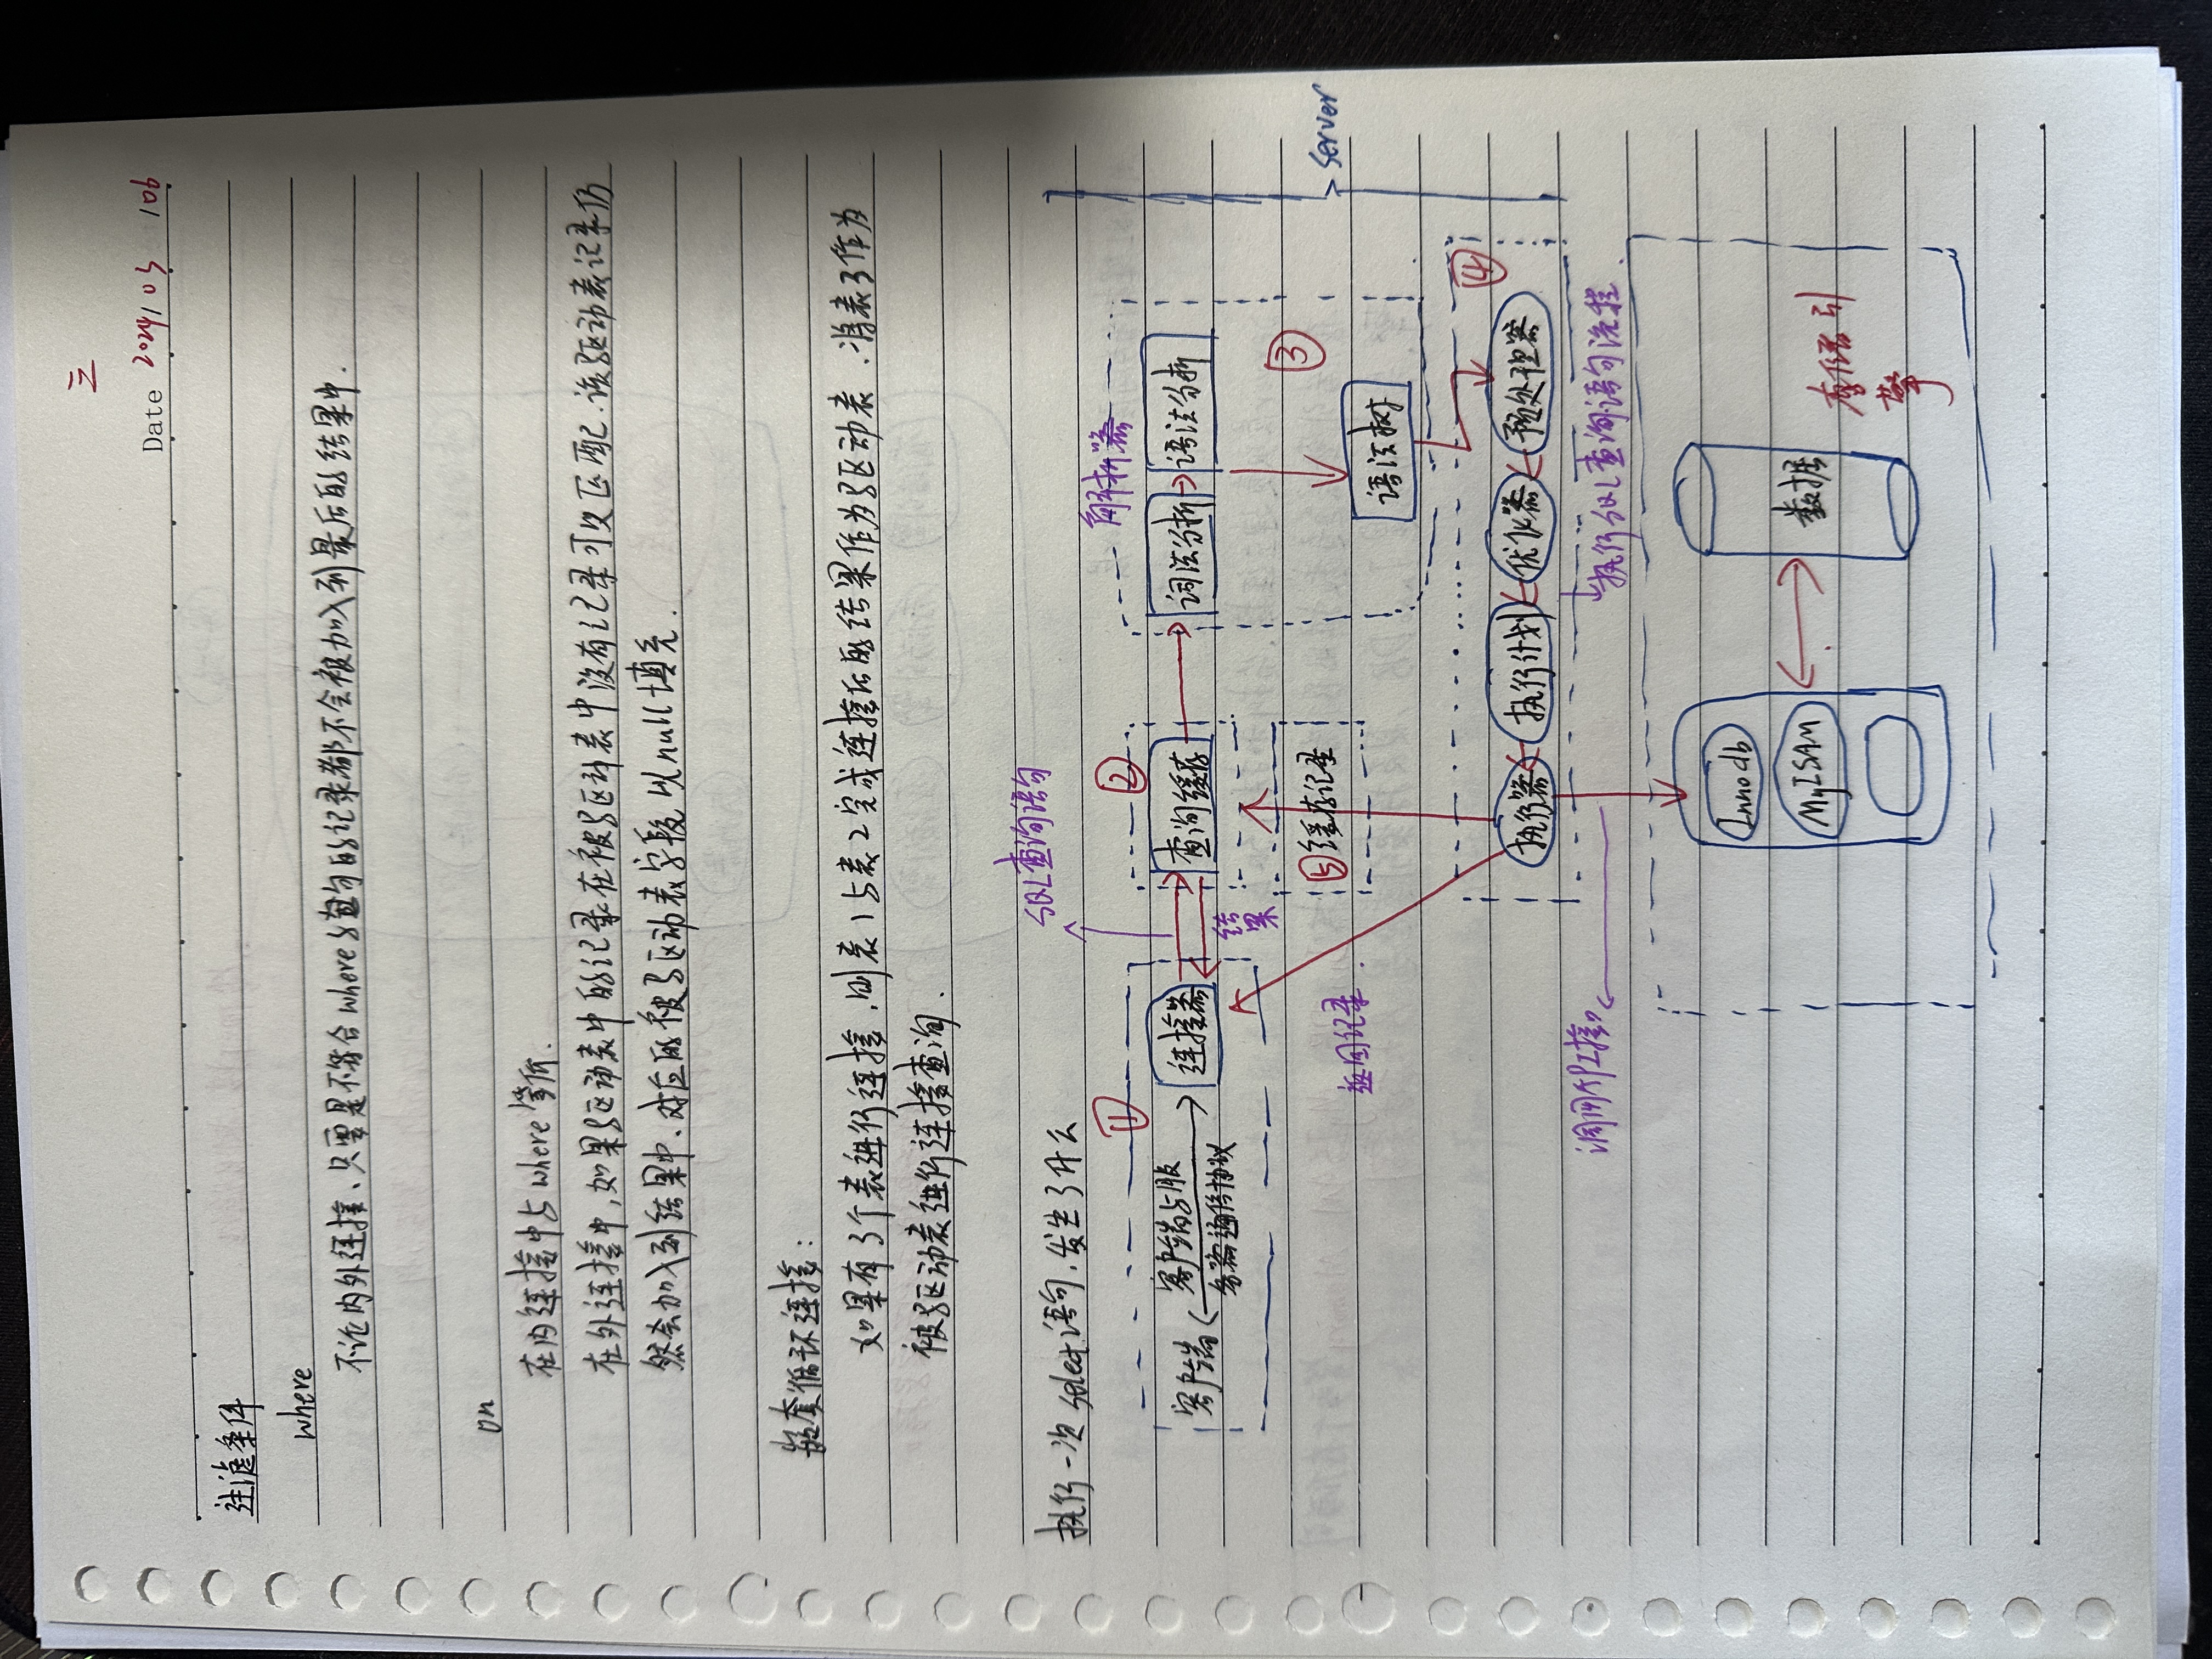 三
Date 2024/03/06
过滤条件
where
不论内外连接、只要是不符合where子句的记录都不会被加入到最后的结果中.
on
在内连接中与where等价.
在外连接中,如果驱动表中的记录在被驱动表中没有记录可以匹配.该驱动表记录仍
然会加入到结果中、对应的被驱动表字段以null填充.
嵌套循环连接:
如果有3个表进行连接,则表1与表2完成连接后的结果作为驱动表.将表3作为
被驱动表进行连接查询.
SQL查询语句
执行一次select语句,发生了什么
① ② 解析器
客户端 客户端与服
务器通信协议
连接器 查询缓存 词法分析 语法分析
结果
③
⑤缓存记录
server
返回记录.
语法树
④
执行器 执行计划 优化器 预处理器
调用API接口
执行SQL查询语句流程.
Innodb
MyISAM
数据
存储引
擎